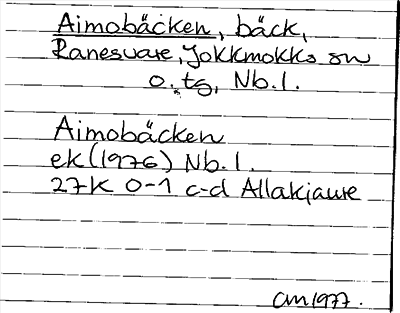 Aimobäcken, bäck,
Ranesvare, Jokkmokks sn
o. tg, Nb. l.
Aimobäcken
ek (1976) Nb. l.
27K 0-1 c-d Allakjaure
CM 1977.